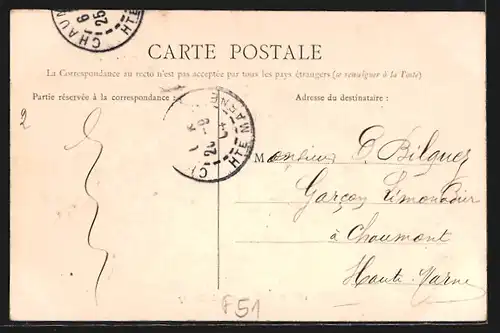 CHAUM
6
25
HTE MARNE
CARTE POSTALE
La Correspondance au recto n'est pas acceptée par tous les pays étrangers (se renseigner à la Poste)
Partie réservée à la correspondance :
Adresse du destinataire :
2
HTE MARNE
Monsieur E. Bilquez
Garçon Limonadier
à Chaumont
Haute-Marne
F51